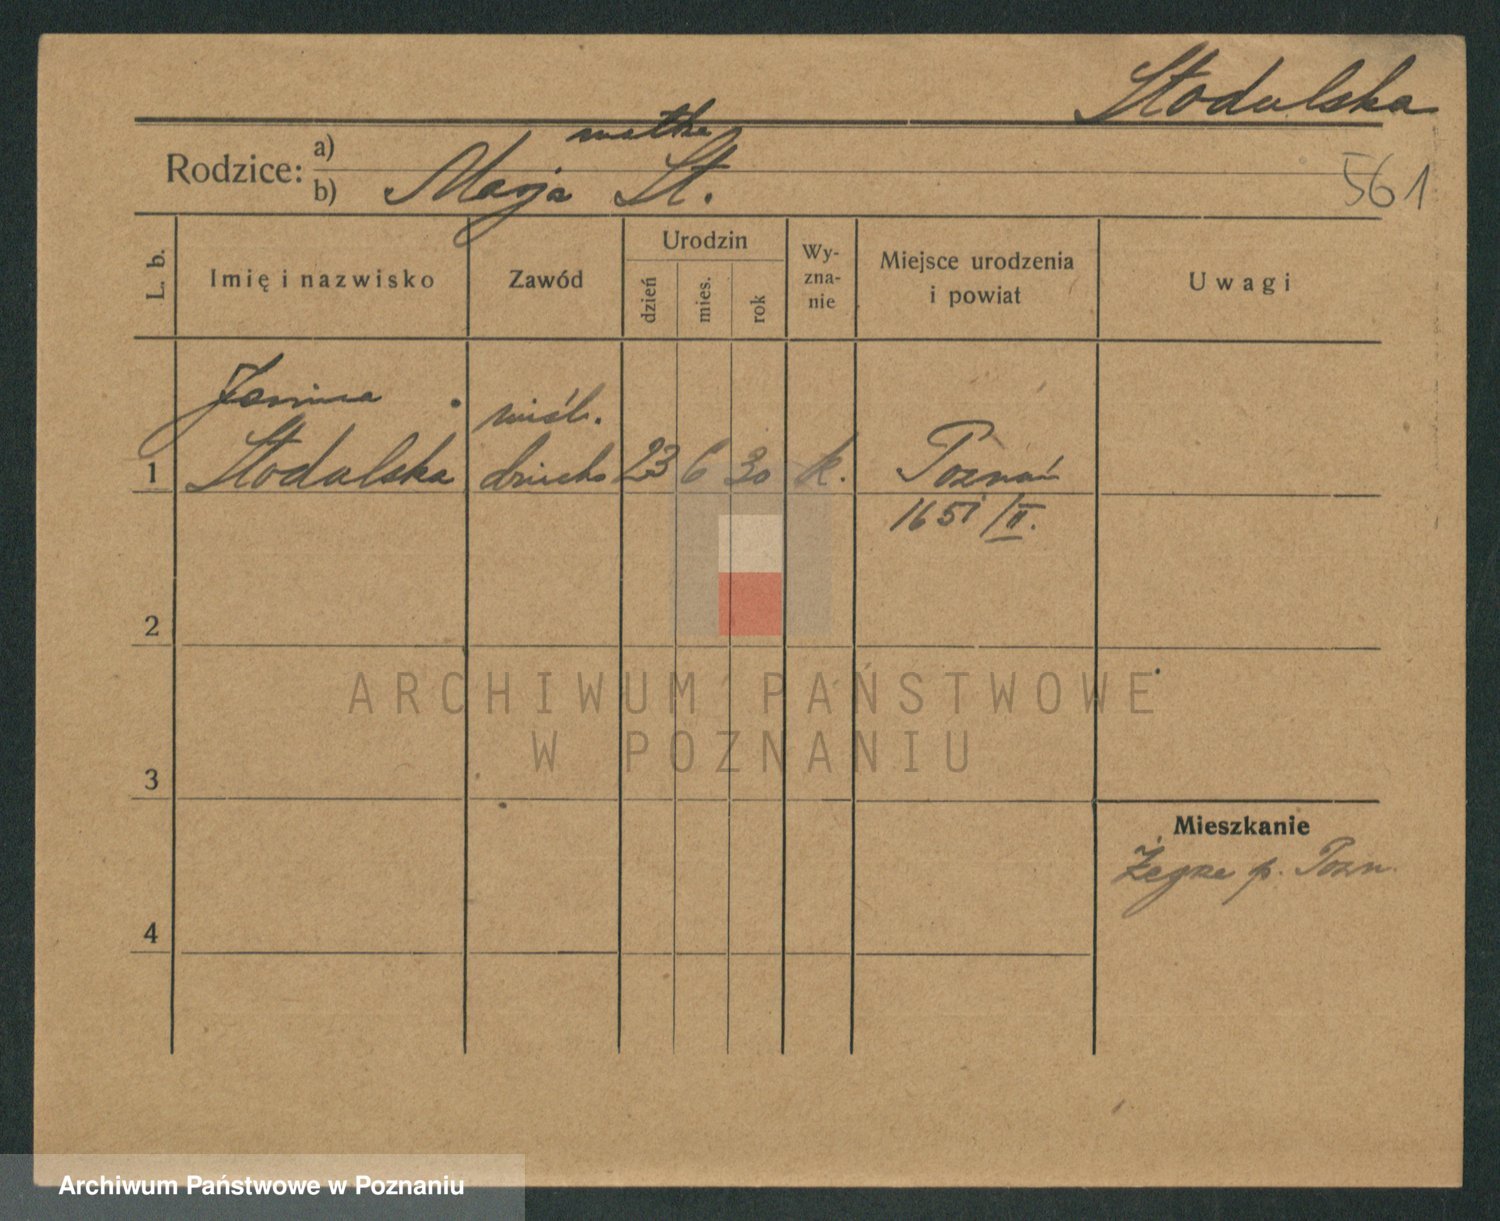 Stodulska
matka
Rodzice: a)
b) Marja St.
561
L. b.
Imię i nazwisko
Zawód
Urodzin
dzień
mies.
rok
Wy-
zna-
nie
Miejsce urodzenia
i powiat
Uwagi
Janina
nieśl.
1 Stodulska dziecko 23 6 30 k. Poznań
1651/II.
2
3
4
Mieszkanie
Żegrze p. Pozn.
ARCHIWUM PAŃSTWOWE
W POZNANIU
Archiwum Państwowe w Poznaniu